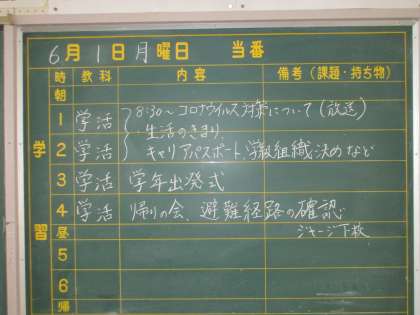 6月1日月曜日 当番
時 教科 内容 備考（課題・持ち物）
朝
1 学活 8:30〜コロナウイルス対策について（放送）
生活のきまり、
2 学活 キャリアパスポート、学級組織決めなど
3 学活 学年出発式
4 学活 帰りの会、避難経路の確認
昼 ジャージ下校
5
6
帰
学習